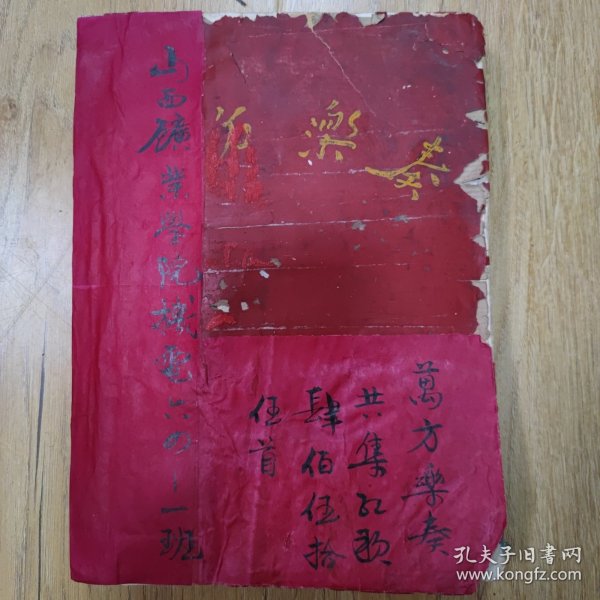 山西礦業學院機電六四一一班
樂奏
萬方樂奏
共集紅歌
肆佰伍拾
伍首
孔夫子旧书网
www.kongfz.com